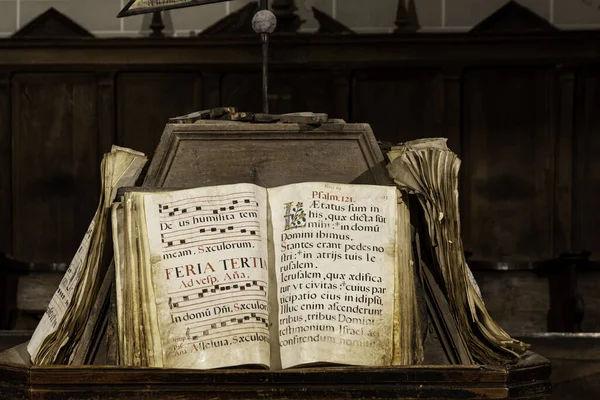 De us humilita tem
meam. Sæculorum.
FERIA TERTI
Ad vesp, Aña,
In domū Dñi. Sæculor
Alleluia, Sæculor
Psalm. 121.
LÆtatus sum in
his, quæ dicta sūt
mihi: in domū
Domini ibimus.
Stantes erant pedes no
stri: in atrijs tuis Ie
rusalem.
Ierusalem, quæ ædifica
tur vt civitas: cuius par
ticipatio eius in idipsū
Illuc enim ascenderūt
tribus, tribus Domini
testimonium Israel ad
confitendum nomi